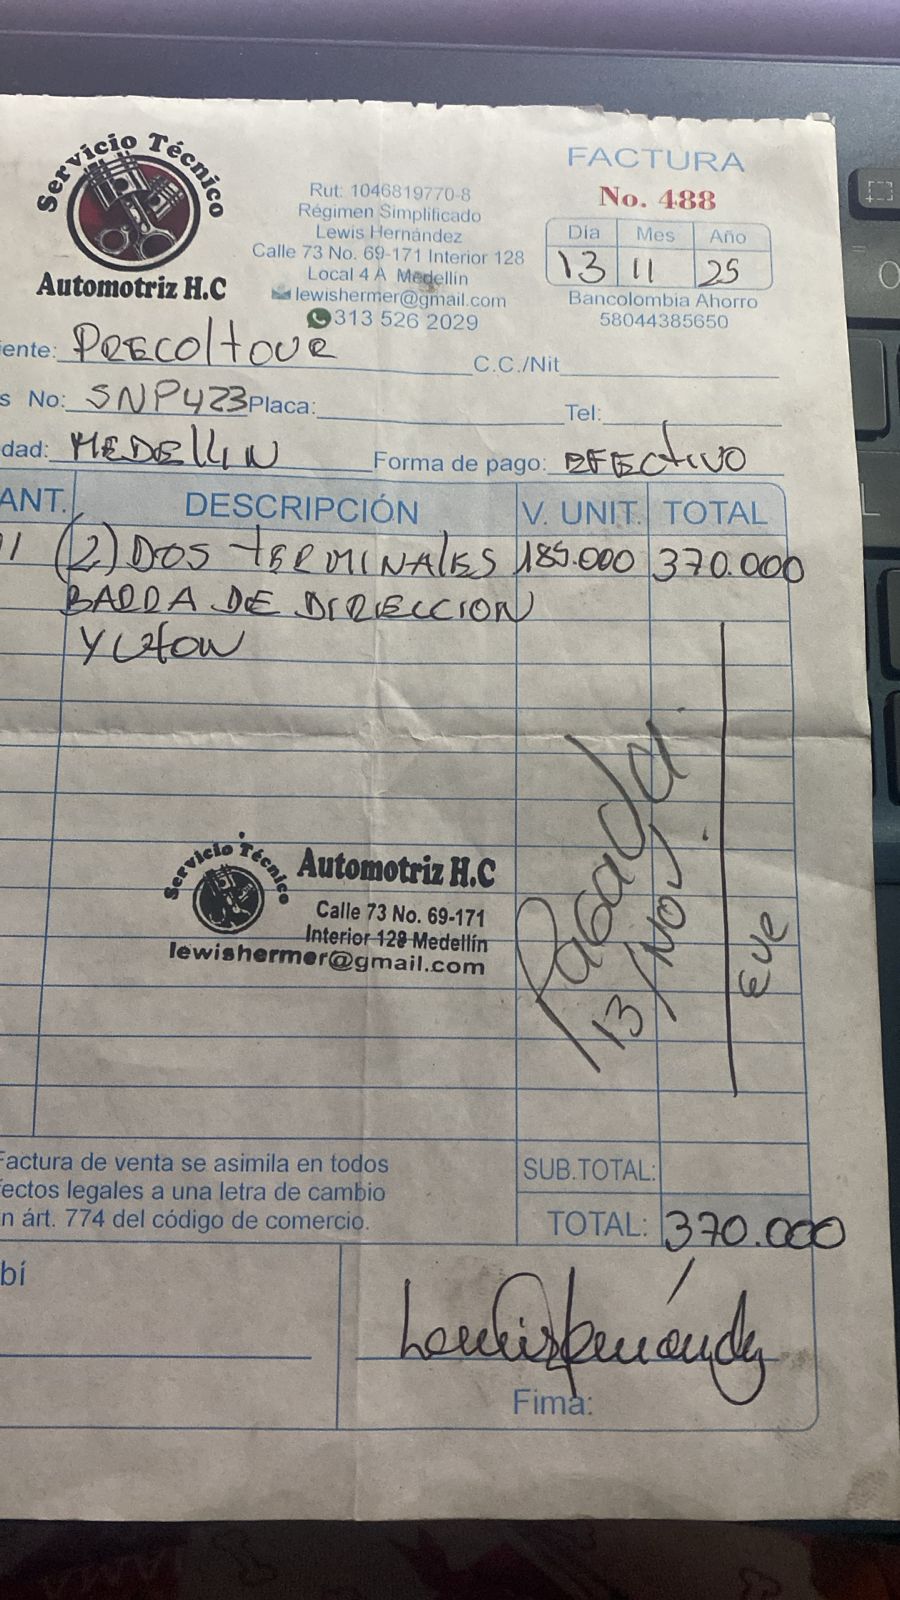 Servicio Técnico
Automotriz H.C
Rut: 1046819770-8
Régimen Simplificado
Lewis Hernández
Calle 73 No. 69-171 Interior 128
Local 4 A Medellín
lewishermer@gmail.com
313 526 2029
FACTURA
No. 488
Día Mes Año
13 11 25
Bancolombia Ahorro
58044385650
iente: PRECOltOUR C.C./Nit
s No: SNP423 Placa: Tel:
dad: MEDEllIN Forma de pago: EFECtIVO
ANT. DESCRIPCIÓN V. UNIT. TOTAL
(2) DOS tERMINAlES 185.000 370.000
BARRA DE DIRECCION
Pagada
13/NOV.
EVE
Servicio Técnico
Automotriz H.C
Calle 73 No. 69-171
Interior 128 Medellín
lewishermer@gmail.com
Factura de venta se asimila en todos
fectos legales a una letra de cambio
n árt. 774 del código de comercio.
SUB.TOTAL:
TOTAL: 370.000
bí
Fima: